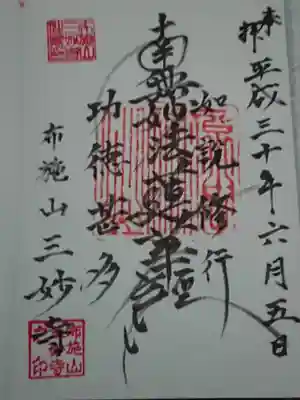 奉拝
平成三十年六月五日
如説修行
南無妙法蓮華経
功徳甚多
布施山三妙寺